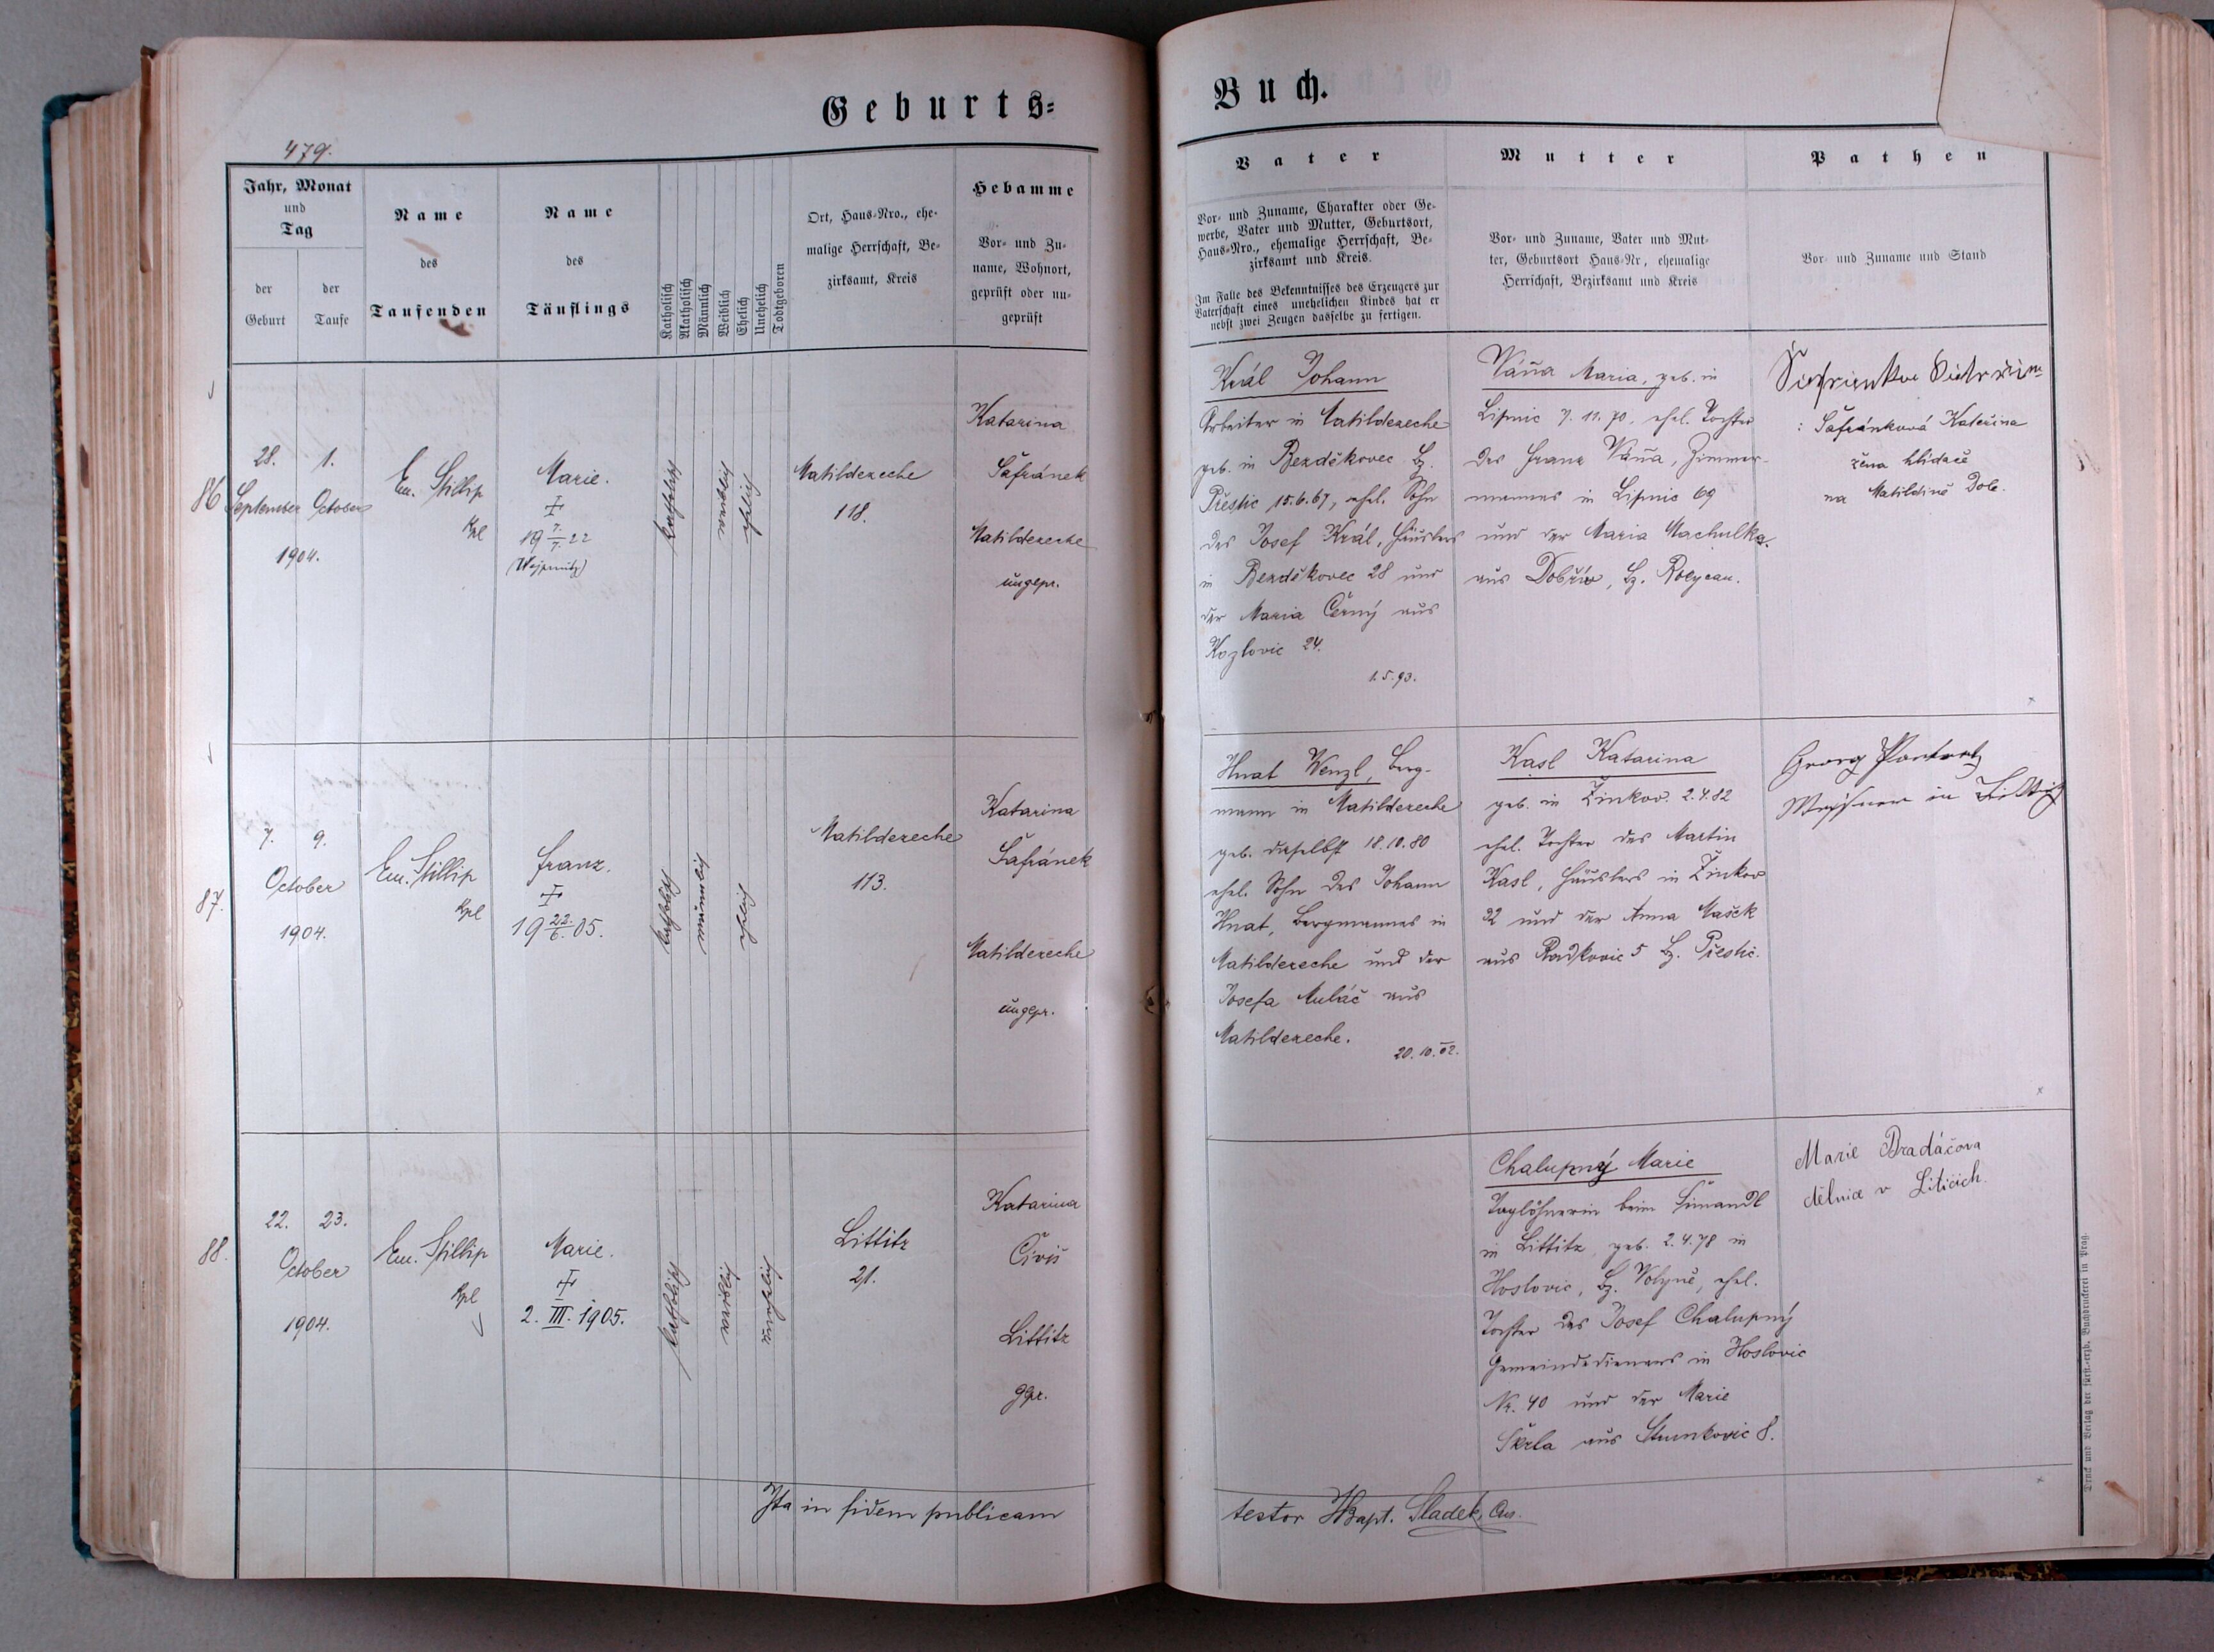 Geburts-
Buch.
479.
Jahr, Monat
und
Tag
der
Geburt
der
Taufe
Name
des
Taufenden
Name
des
Täuflings
Katholisch
Akatholisch
Männlich
Weiblich
Ehelich
Unehelich
Todtgeboren
Ort, Haus-Nro., ehe-
malige Herrschaft, Be-
zirksamt, Kreis
Hebamme
Vor- und Zu-
name, Wohnort,
geprüft oder un-
geprüft
Vater
Vor- und Zuname, Charakter oder Ge-
werbe, Vater und Mutter, Geburtsort,
Haus-Nro., ehemalige Herrschaft, Be-
zirksamt und Kreis.
Im Falle des Bekenntnisses des Erzeugers zur
Vaterschaft eines unehelichen Kindes hat er
nebst zwei Zeugen dasselbe zu fertigen.
Mutter
Vor- und Zuname, Vater und Mut-
ter, Geburtsort Haus-Nr, ehemalige
Herrschaft, Bezirksamt und Kreis
Pathen
Vor- und Zuname und Stand
86
28. 1.
September October
1904.
Em. Stillip
Kpl
Marie.
19 7./7. 22
katholisch
weiblich
ehelich
Matildezeche
118.
Katarina
Šafránek
Matildezeche
ungepr.
Král Johann
Arbeiter in Matildezeche
geb. in Bezděkovec Bz.
Přestic 15.6.67, ehel. Sohn
des Josef Král, Häuslers
in Bezděkovec 28 und
der Maria Černý aus
Kozlovic 24.
1.5.93.
Váňa Maria, geb. in
Lipnic 7.11.70. ehel. Tochter
des Franz Váňa, Zimmer-
mannes in Lipnic 69
und der Maria Machulka
aus Dobřív, Bz. Rokycan.
: Šafránková Kateřina
žena hlídače
na Matildině Dole.
87.
7. 9.
October
1904.
Em. Stillip
Kpl
Franz.
19 22./6. 05.
katholisch
männlich
ehelich
Matildezeche
113.
Katarina
Šafránek
Matildezeche
ungepr.
Hnat Wenzl, Berg-
mann in Matildezeche
geb. daselbst 18.10.80
ehel. Sohn des Johann
Hnat, Bergmannes in
Matildezeche und der
Josefa Auláč aus
Matildezeche.
20.10.02.
Kasl Katarina
geb. in Žinkov. 2.4.82
ehel. Tochter des Martin
Kasl, Häuslers in Žinkov
92 und der Anna Mašek
aus Radkovic 5 Bz. Přestic.
Georg
in
88.
22. 23.
October
1904.
Em. Stillip
Kpl
Marie.
2. III. 1905.
katholisch
weiblich
unehelich
Littitz
21.
Katarina
Civiš
Littitz
gpr.
Chalupný Marie
Taglöhnerin beim Simandl
in Littitz, geb. 2.4.78 in
Hoslovic, Bz. Volyně, ehel.
Tochter des Josef Chalupný
Gemeindedieners in Hoslovic
Nr. 40 und der Marie
Škrla aus Strunkovic 8.
Marie Bradáčova
dělnice v Liticích.
Ita in fidem publicam
testor JBapt. Sladek,
Druck und Verlag der fürst.-erzb. Buchdruckerei in Prag.